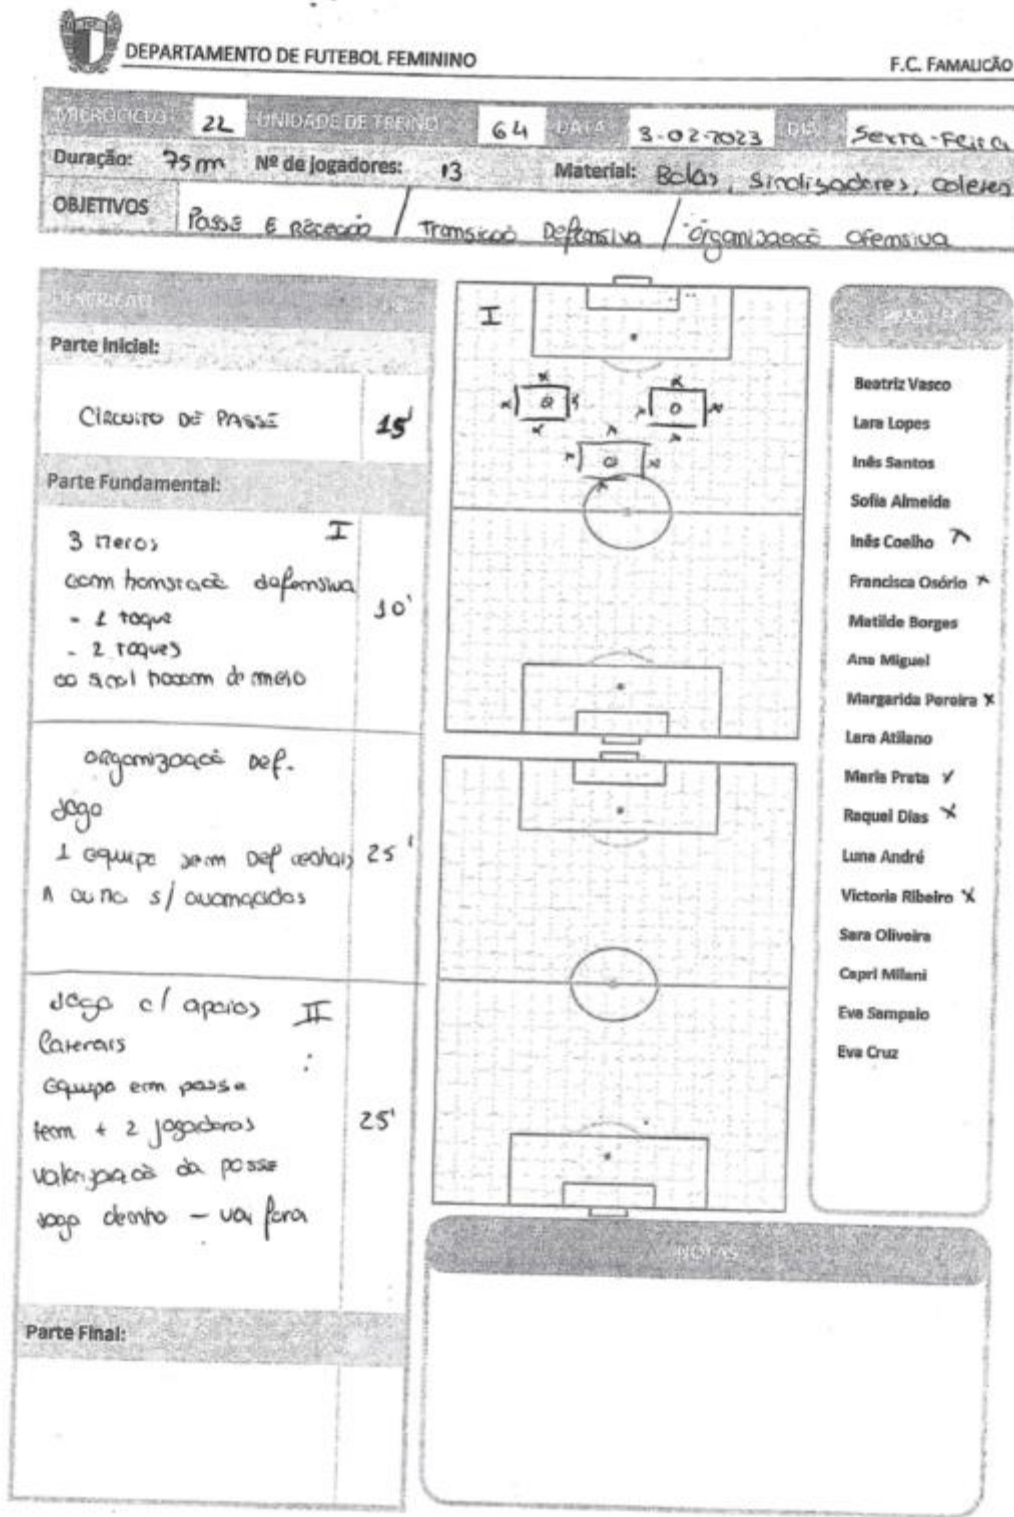 DEPARTAMENTO DE FUTEBOL FEMININO
F.C. FAMALICÃO
MICROCICLO: 22 UNIDADE DE TREINO 64 DATA 3-02-2023 DIA Sexta-Feira
Duração: 75m Nº de jogadores: 13 Material: Bolas, Sinalisadores, coletes
OBJETIVOS Passe E Receção / Transicão Defensiva / organizaacão ofensiva
DESCRIÇÃO
Parte Inicial:
CIRCUITO DE PASSE 15'
Parte Fundamental:
I
3 meros
com transicão defensiva
- 1 toque 10'
- 2 toques
ao sinal trocam de meio
organizaçcão Def.
Jogo
1 equipa sem Def centrais 25'
A outra s/ avançados
Jogo c/ apoios II
laterais
Equipa em posse
tem + 2 jogadoras 25'
valorizaçcão da posse
joga dentro – vai fora
Parte Final:
I
Beatriz Vasco
Lara Lopes
Inês Santos
Sofia Almeida
Inês Coelho x
Francisca Osório x
Matilde Borges
Ana Miguel
Margarida Pereira x
Lara Atilano
Maria Prata x
Raquel Dias x
Luna André
Victoria Ribeiro x
Sara Oliveira
Capri Milani
Eva Sampaio
Eva Cruz
NOTAS